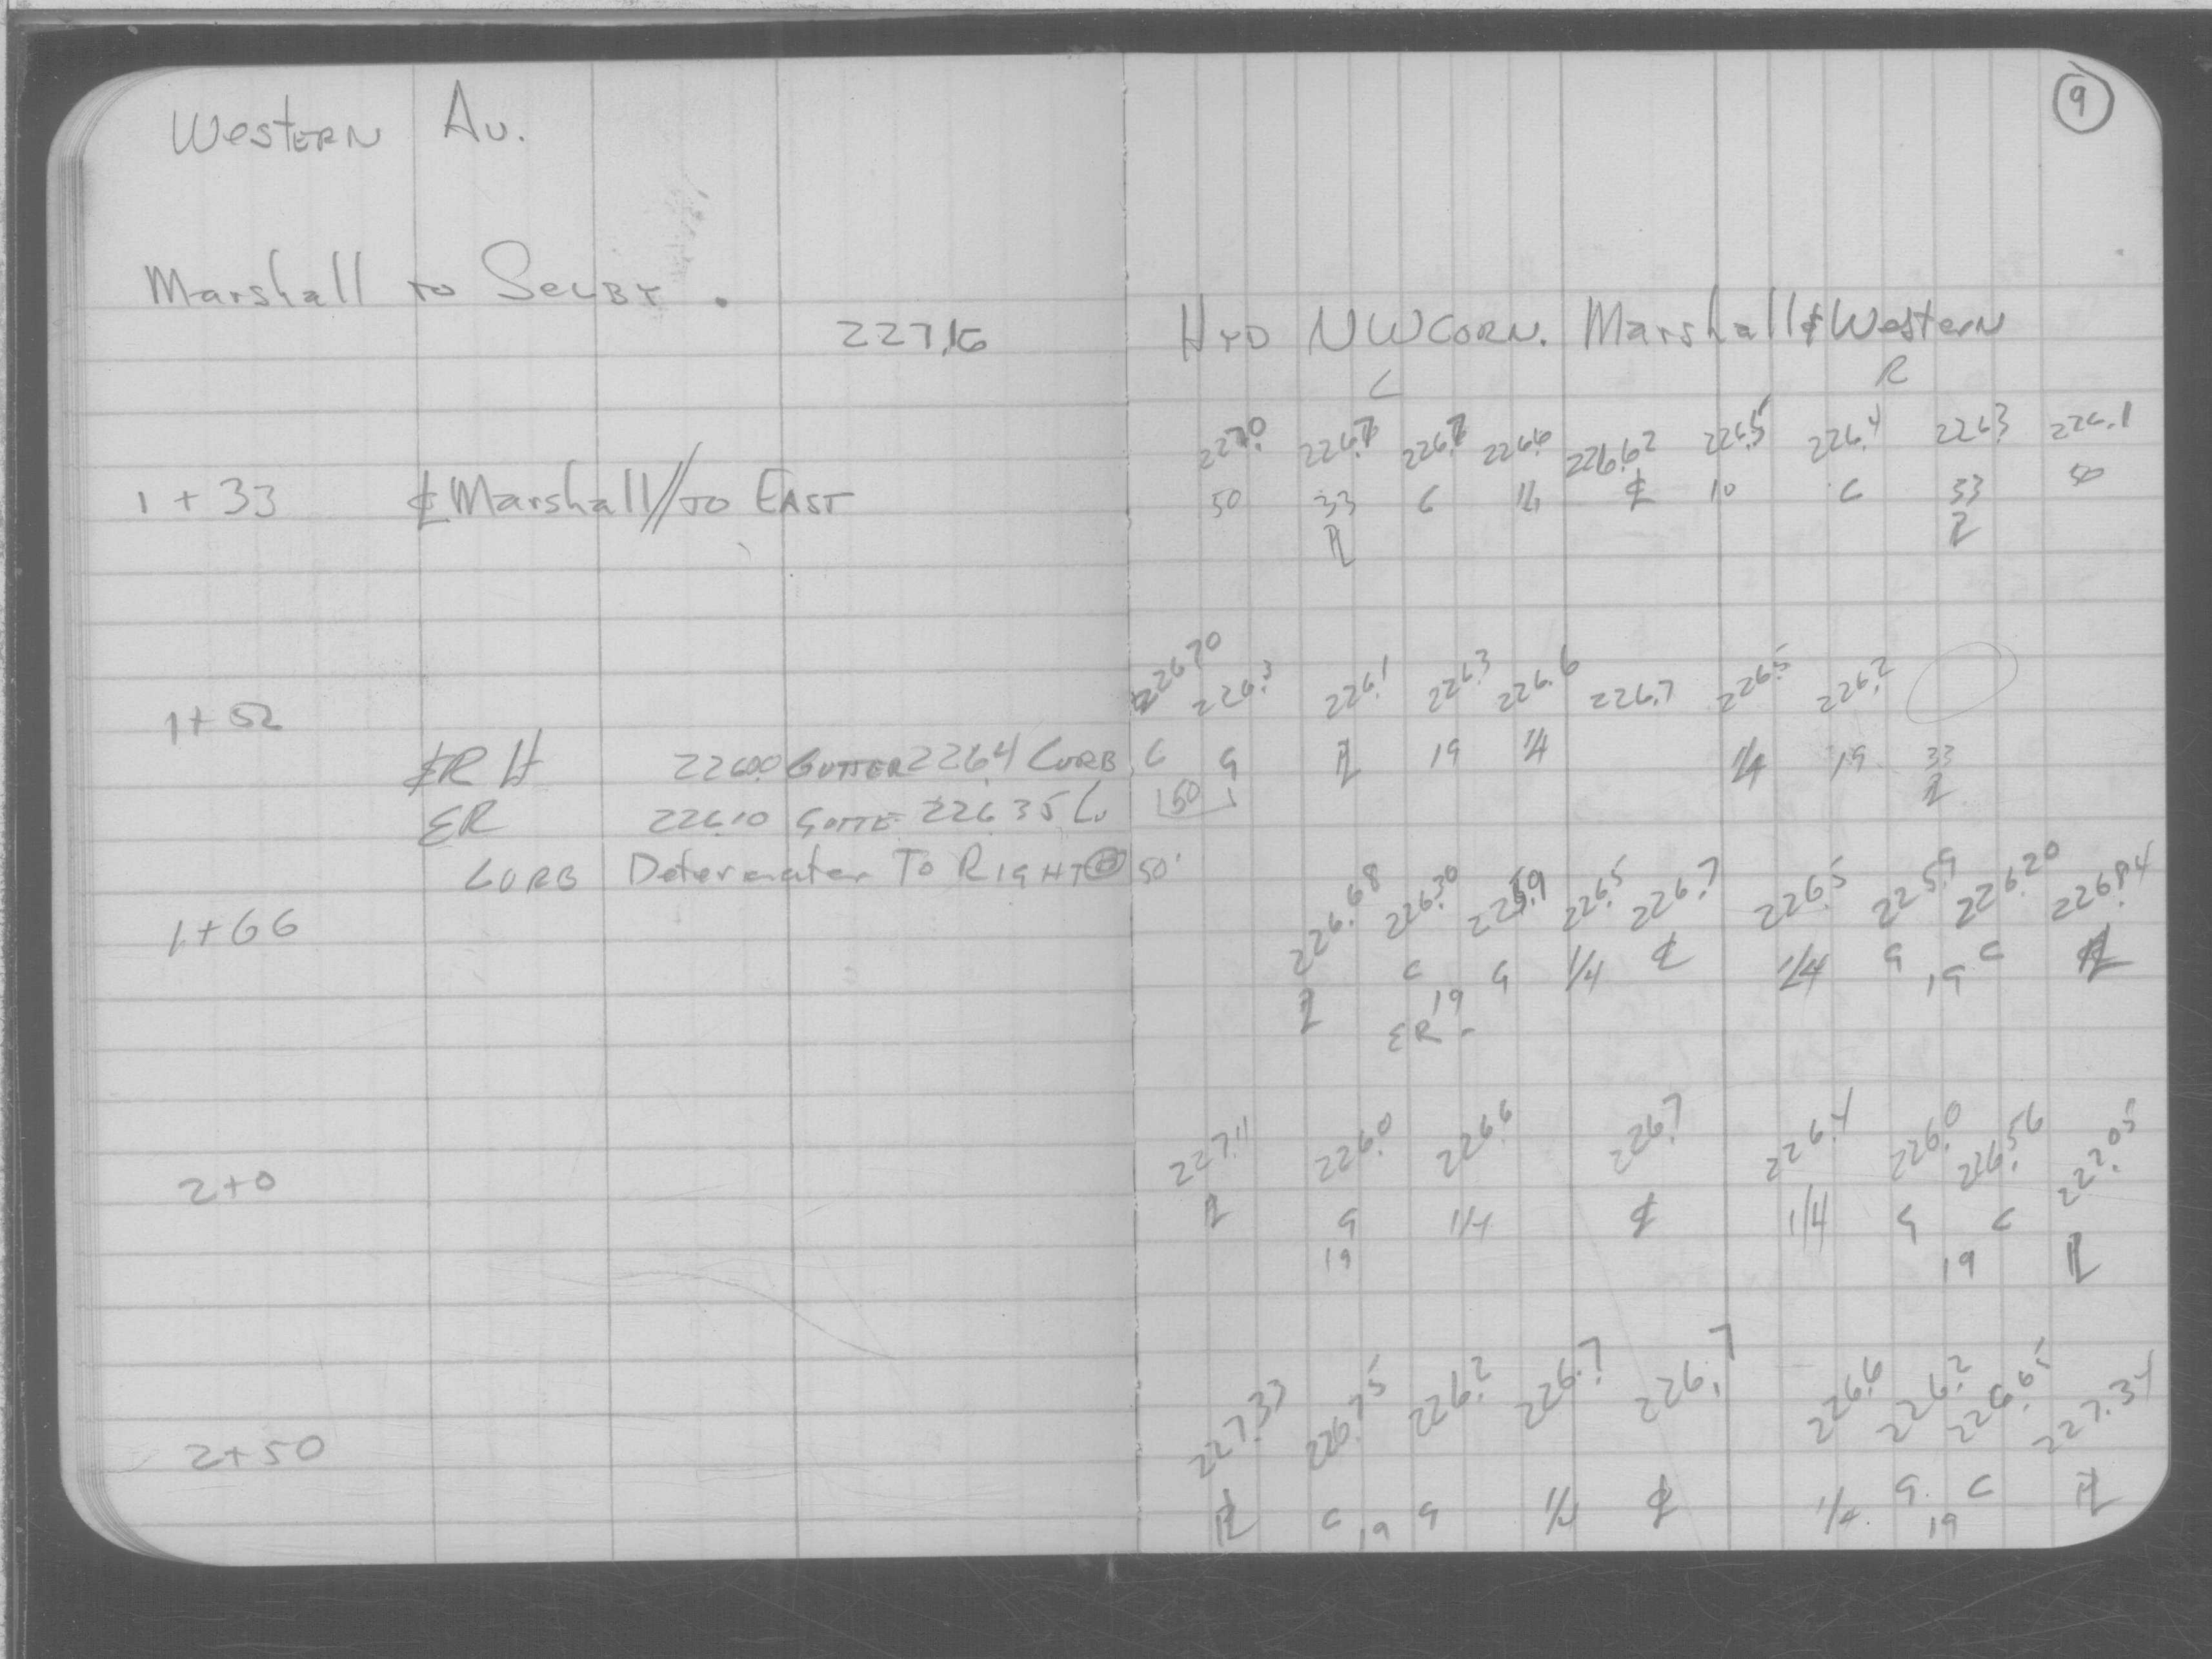 9
Western Av.
Marshall to Selby.
227.16 Hyd NW Corn. Marshall & Western
L R
227.0 226.7 226.7 226.6 226.62 226.5 226.4 226.3 226.1
1+33 ℄ Marshall // to East 50 33 C 1/4 ℄ 10 C 33 50
PL PL
226.70 226.3 226.1 226.3 226.6 226.7 226.5 226.2
1+52
226.00 Gutter 226.4 Curb C G PL 19 1/4 1/4 19 33
ER 226.10 Gutte 226.35 C. 50 PL
Curb To Right 50'
226.68 226.30 225.9 226.5 226.7 226.5 225.9 226.20 226.84
1+66 C G 1/4 ℄ 1/4 G C PL
PL 19 19
ER
227.11 226.0 226.6 226.7 226.4 226.0 226.56 227.05
2+0 PL G 1/4 ℄ 1/4 G C PL
19 19
227.33 226.75 226.2 226.7 226.7 226.6 226.2 226.65 227.34
2+50 PL C G 1/4 ℄ 1/4 G C PL
19 19